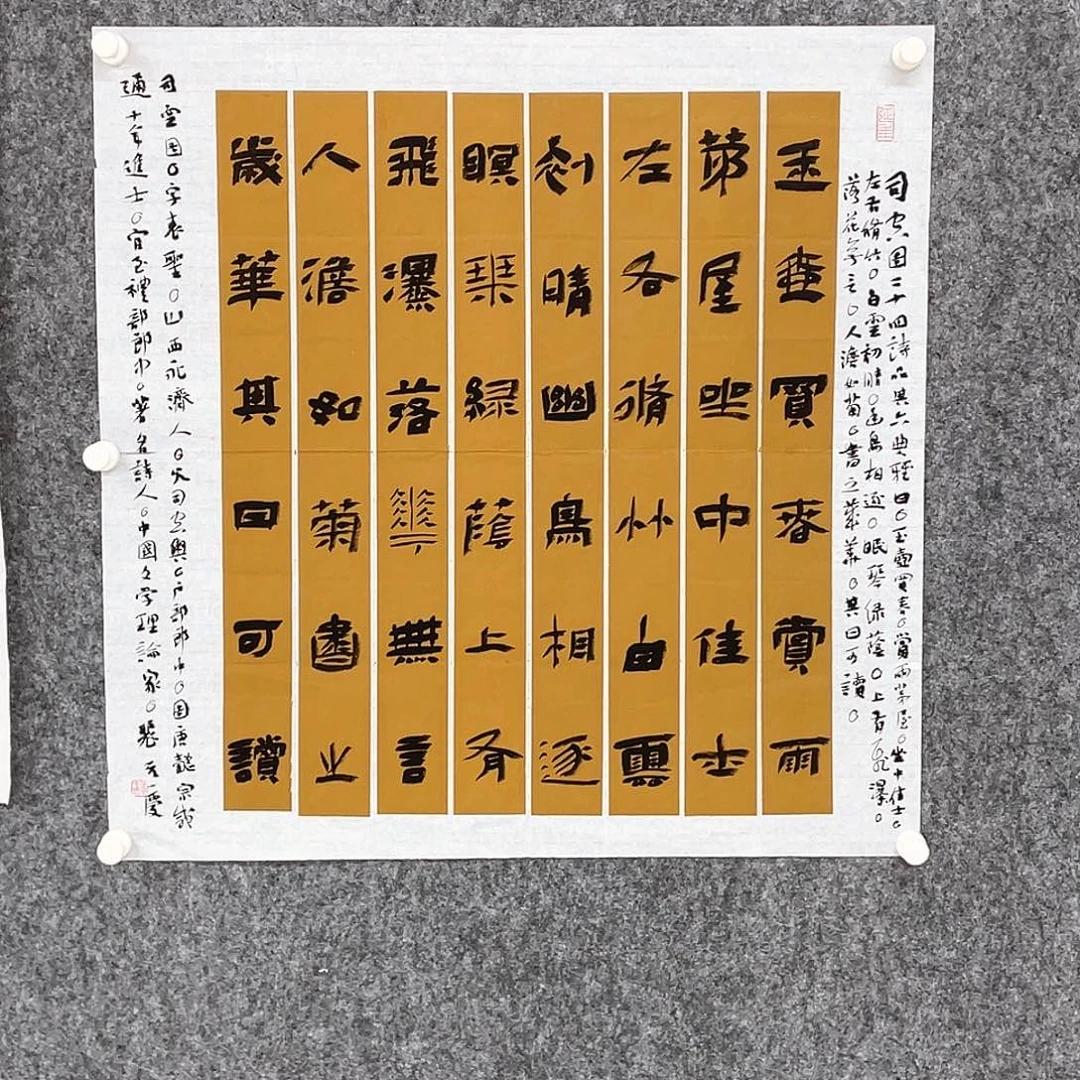 司空图二十四詩品其六典雅曰○玉壺買春○賞雨茅屋○坐中佳士○
左右脩竹○白雲初晴○幽鳥相逐○眠琴绿蔭○上有飛瀑○
落花無言○人澹如菊○書之歲華○其曰可讀○
玉壺買春賞雨
茆屋坐中佳士
左右脩竹白雲
初晴幽鳥相逐
瞑琹緑蔭上有
飛瀑落華無言
人澹如菊書之
歲華其曰可讀
司空图○字表聖○山西永濟人○父司空輿○户部郎中○图唐懿宗咸
通十年進士○官至禮部郎中○著名詩人○中國文学理論家○